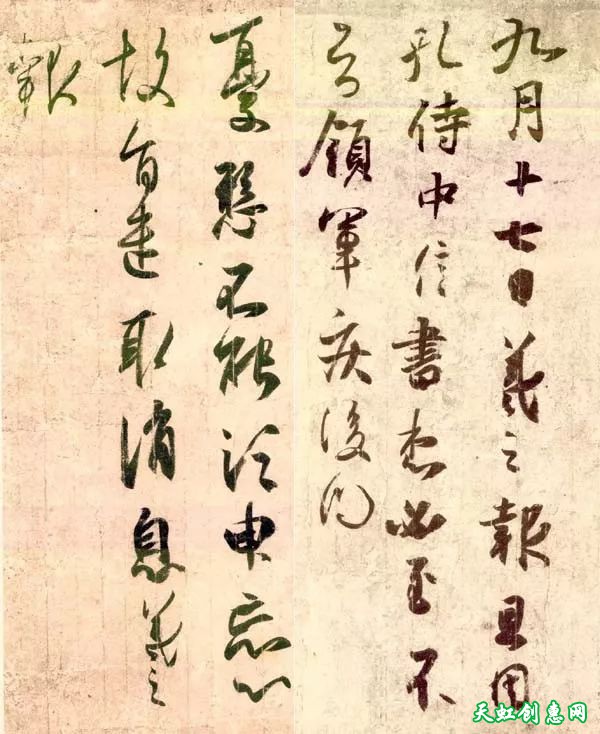 九月十七日羲之報且因
孔侍中信書想必至不
知領軍疾後問
憂懸不能須臾忘心
故旨遣取消息羲之
報
天虹创惠网